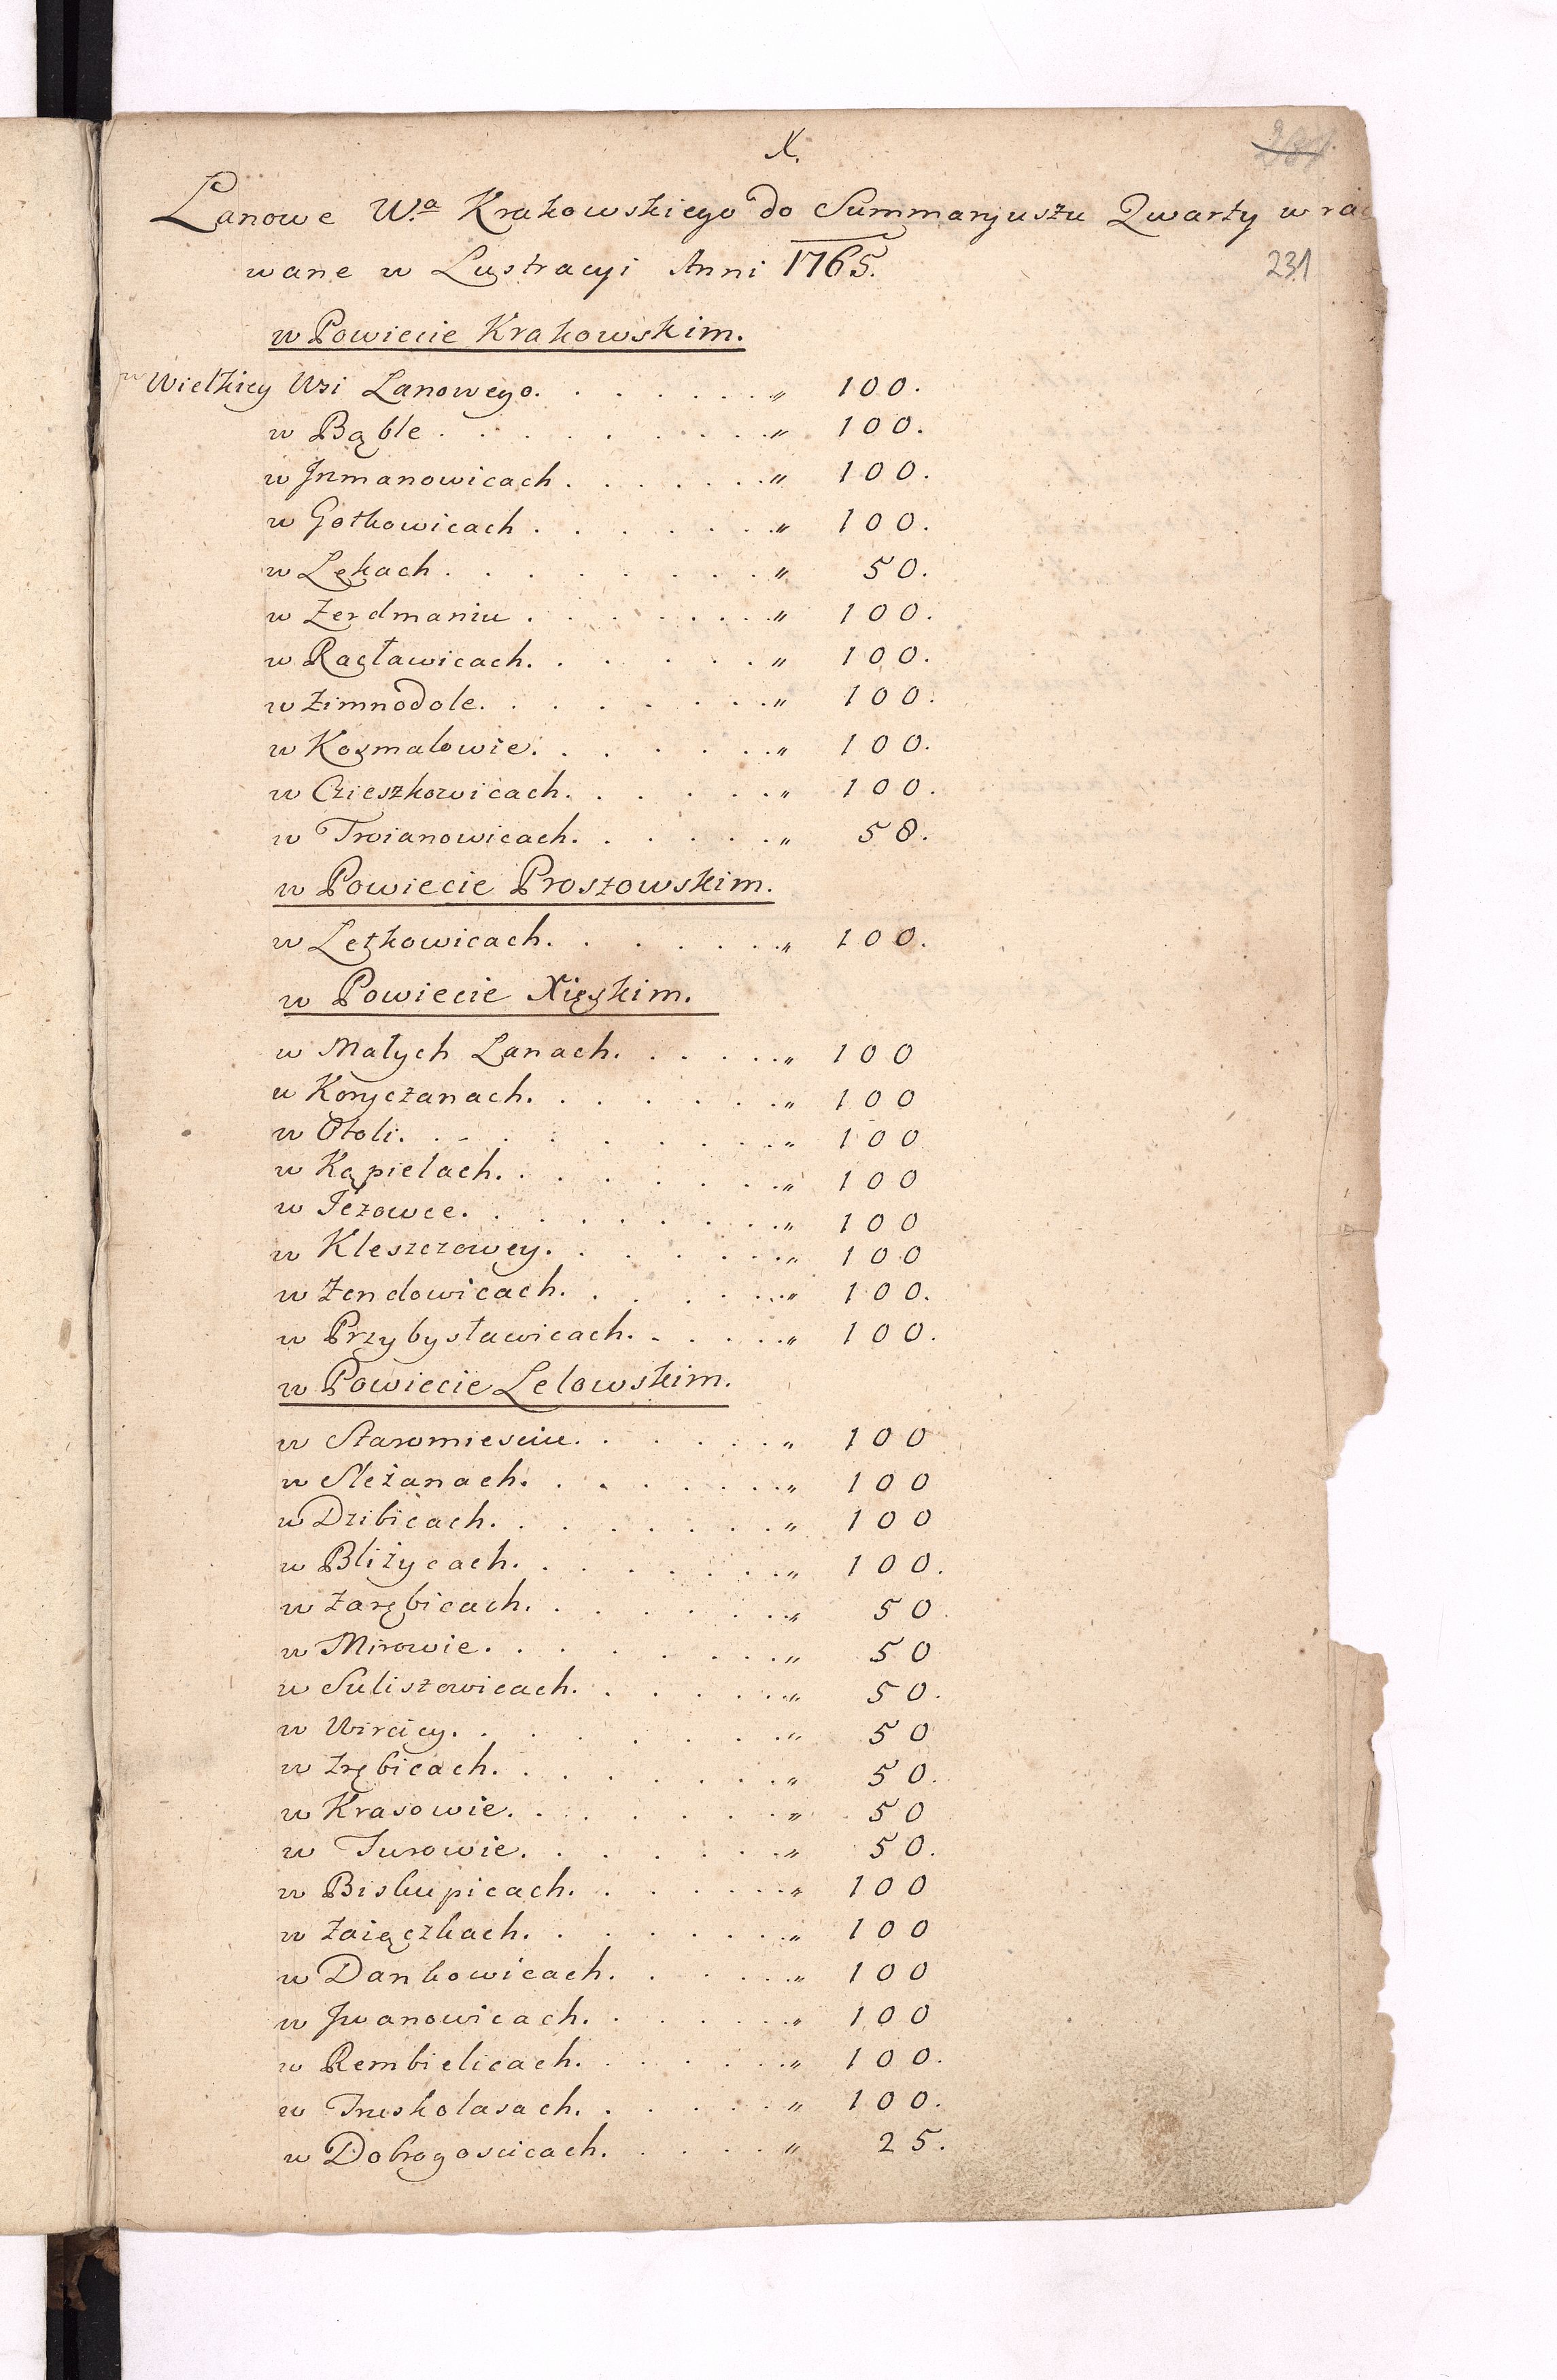 X.
Lanowe W.a Krakowskiego do Summaryuszu Qwarty w
231
wane w Lustracyi Anni 1765.
w Powiecie Krakowskim.
w Wielkiey Wsi Lanowego. . . . . . . „ 100.
w Bąble . . . . . . . . . „ 100.
w Jrzmanowicach . . . . . . . „ 100.
w Gotkowicach . . . . . . . „ 100.
w Lękach . . . . . . . . „ 50.
w Zerdmaniu . . . . . . . „ 100.
w Racławicach. . . . . . . „ 100.
w Zimnodole. . . . . . . . „ 100.
w Kozmalowie. . . . . . . „ 100.
w Czieszkowicach. . . . . . „ 100.
w Troianowicach. . . . . . „ 58.
w Powiecie Proszowskim.
w Lętkowicach. . . . . . . „ 100.
w Powiecie Xięskim.
w Małych Lanach. . . . . „ 100
w Koryczanach. . . . . . . „ 100
w Otoli. . . . . . . . . „ 100
w Kąpielach. . . . . . . . „ 100
w Jeżowce. . . . . . . . „ 100
w Kleszczowey. . . . . . . „ 100
w Zendowicach. . . . . . „ 100.
w Przybysławicach. . . . . „ 100.
w Powiecie Lelowskim.
w Staromiesciu. . . . . . „ 100
w Slezanach. . . . . . . „ 100
w Dzibicach. . . . . . . . „ 100
w Bliżycach. . . . . . . „ 100.
w Zarębicach. . . . . . . „ 50.
w Mirowie. . . . . . . . „ 50
w Suliszowicach. . . . . . „ 50.
w Wircicy. . . . . . . . „ 50
w Zrębicach. . . . . . . . „ 50.
w Krasowie. . . . . . . „ 50
w Turowie. . . . . . . „ 50.
w Biskupicach. . . . . . „ 100
w Zaiączkach. . . . . . . „ 100
w Dankowicach. . . . . „ 100
w Jwanowicach. . . . . . „ 100
w Rembielicach. . . . . . „ 100.
w Truskolasach. . . . . . „ 100.
w Dobrogoscicach. . . . . „ 25.